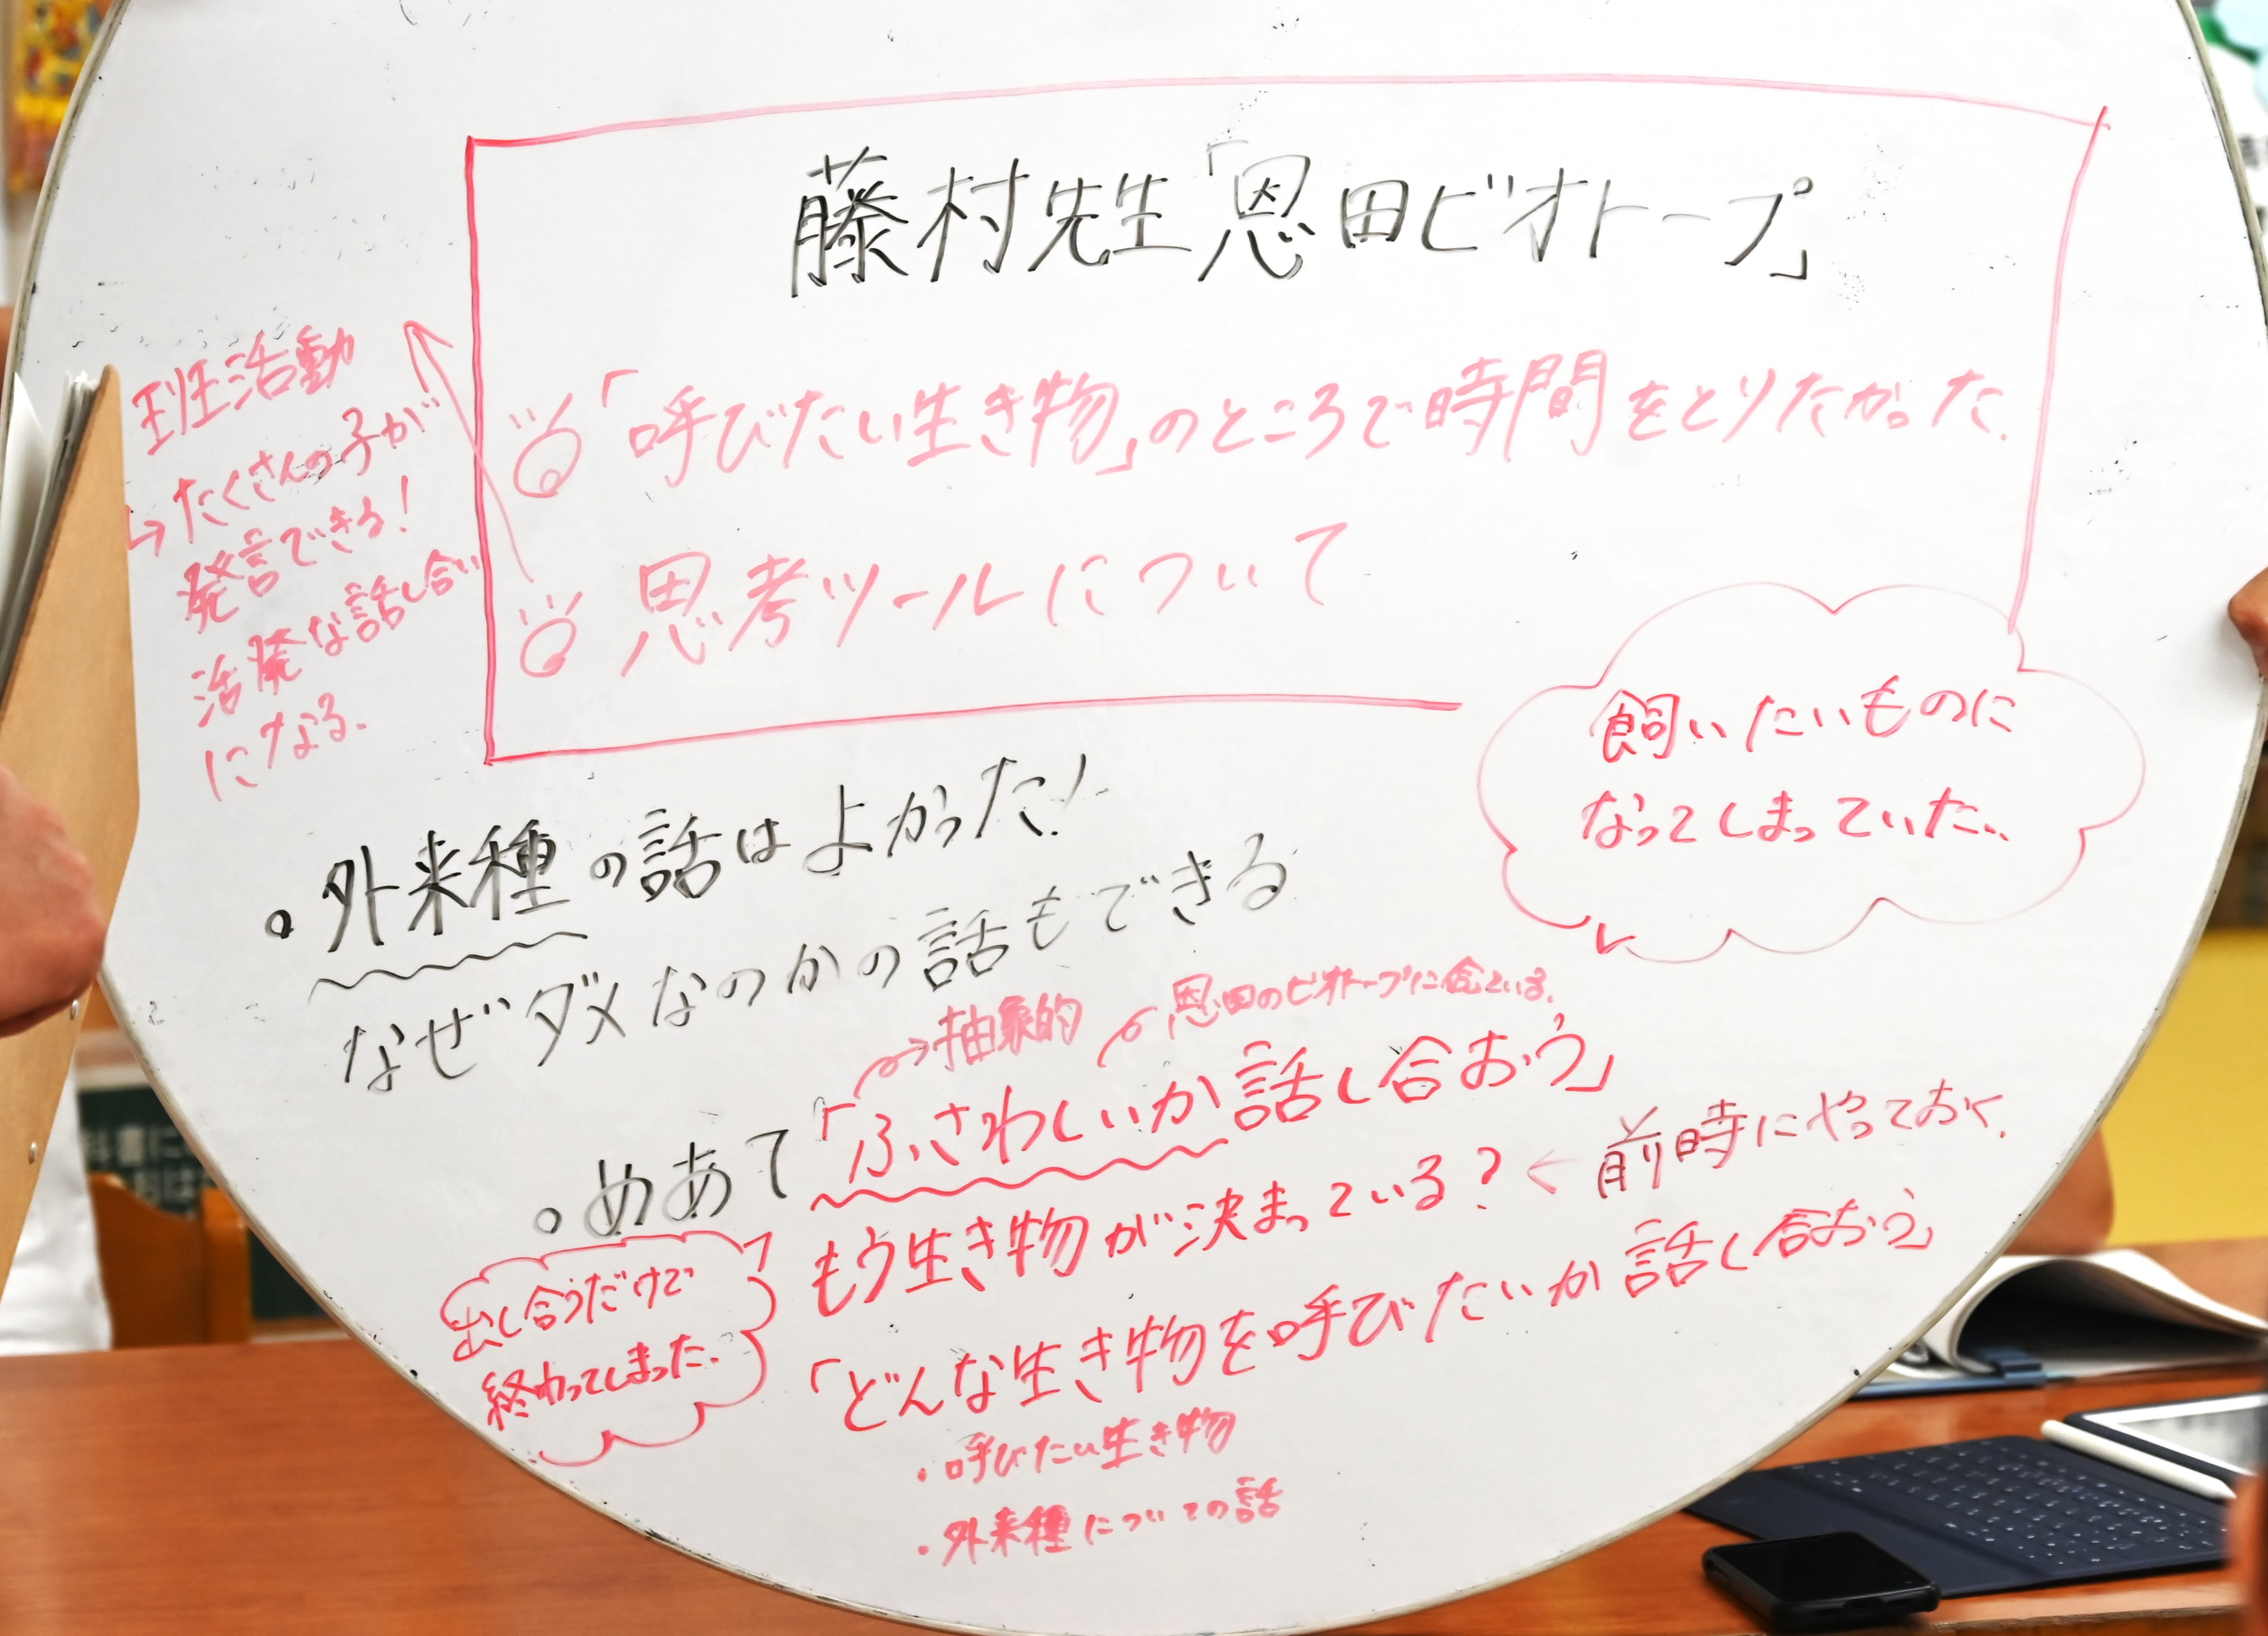 藤村先生「恩田ビオトープ」
「呼びたい生き物」のところで時間をとりたかった.
思考ツールについて
班活動
→たくさんの子が
発言できる!
活発な話し合い
になる.
飼いたいものに
なってしまっていた…
・外来種の話はよかった!
なぜダメなのかの話もできる
→抽象的
恩田のビオトープに合っている.
・めあて「ふさわしいか話し合おう」
もう生き物が決まっている?←前時にやっておく.
「どんな生き物を呼びたいか話し合おう」
・呼びたい生き物
・外来種についての話
出し合うだけで
終わってしまった.